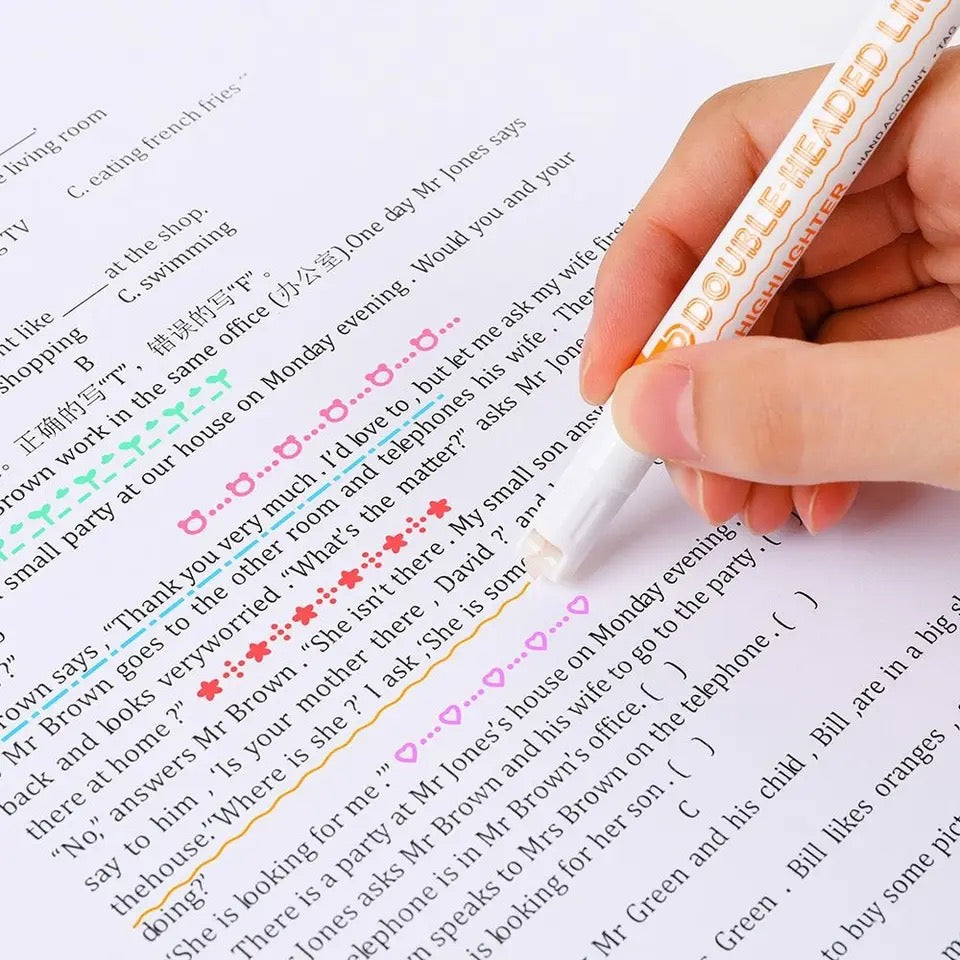 e living room
C. eating french fries"
g TV
at the shop.
nt like
C. swimming
shopping
B
。正确的写“T”， 错误的写“F”。
rown work in the same office (办公室).One day Mr Jones says
small party at our house on Monday evening . Would you and your
rown says ,“Thank you very much . I'd love to , but let me ask my wife first
Mr Brown goes to the other room and telephones his wife . Then
back and looks veryworried .“What's the matter?” asks Mr Jone
there at home ?”
“No,” answers Mr Brown .“She isn't there . My small son answ
say to him , ‘Is your mother there , David ?’ and
thehouse.’‘Where is she ?’ I ask ,‘She is som
doing?’
‘She is looking for me .’”
There is a party at Mr Jones's house on Monday evening.
Jones asks Mr Brown and his wife to go to the party . (
elephone is in Mr Brown's office. ( )
n speaks to Mrs Brown on the telephone . ( )
is looking for her son . ( )
C
Mr Green and his child , Bill ,are in a big s
Green . Bill likes oranges ,
to buy some pict
DOUBLE-HEADED LIN
HIGHLIGHTER
• HAND ACCOUNT • TAG